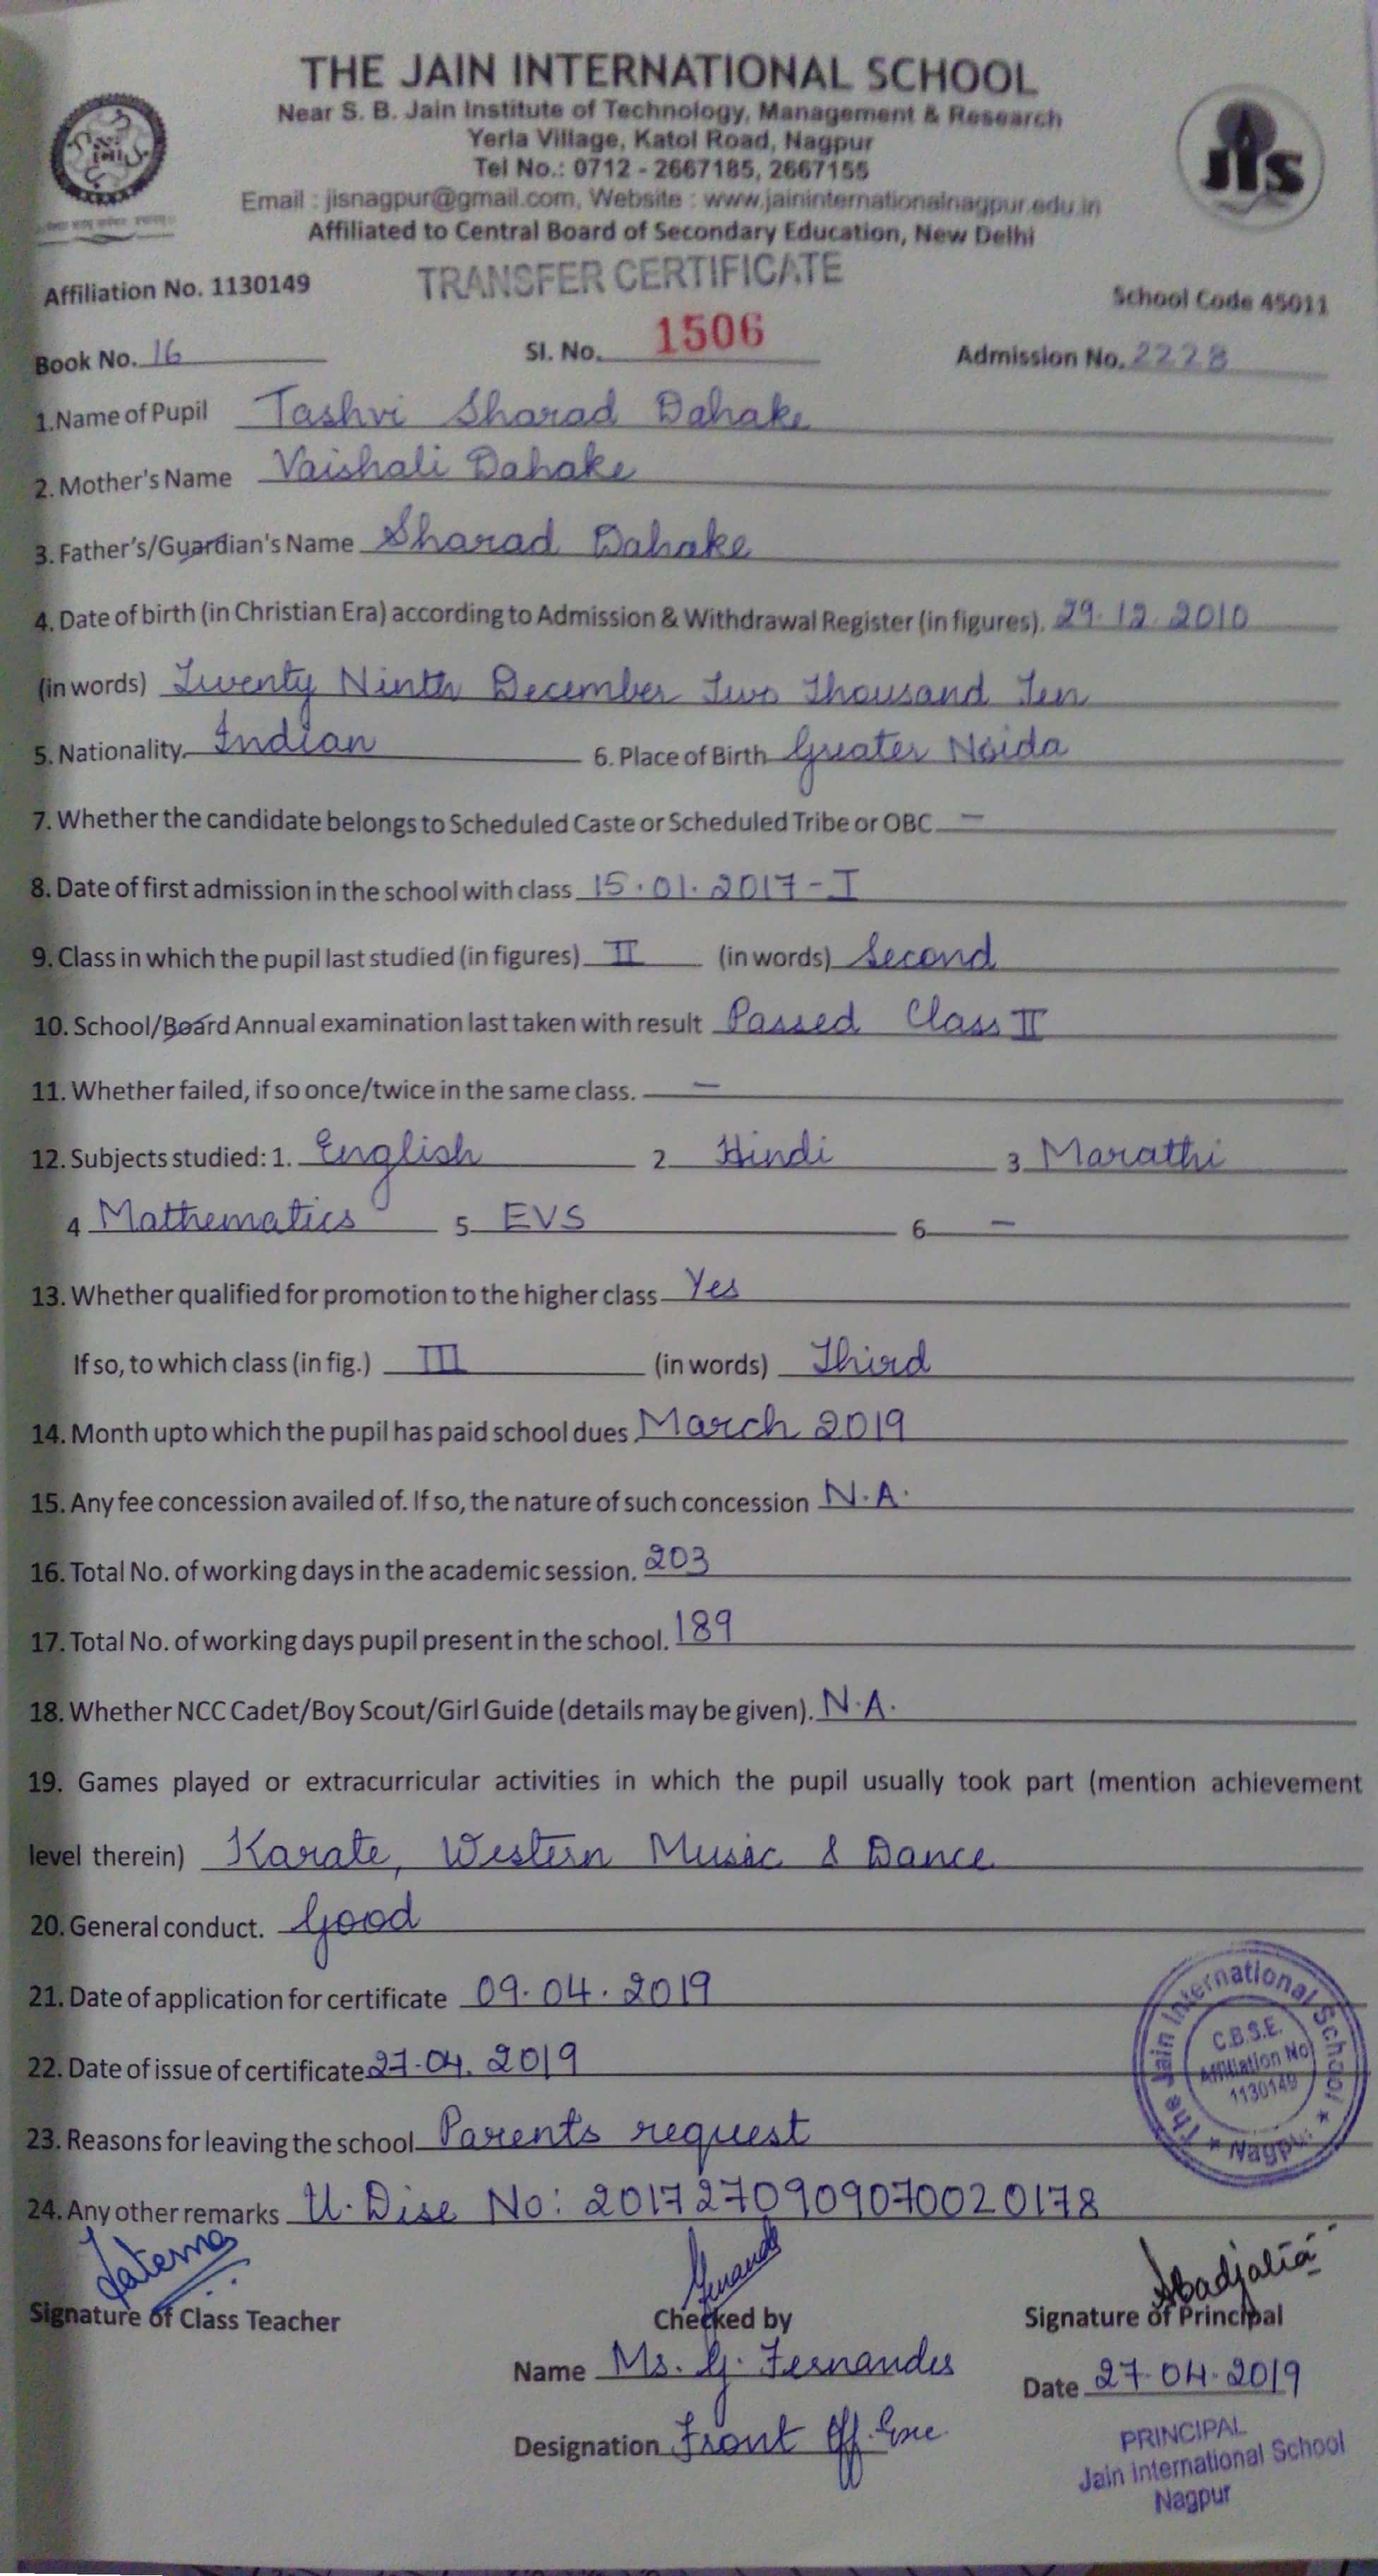 THE JAIN INTERNATIONAL SCHOOL
Near S. B. Jain Institute of Technology, Management & Research
Yerla Village, Katol Road, Nagpur
Tel No.: 0712 - 2667185, 2667155
Email : jisnagpur@gmail.com, Website : www.jaininternationalnagpur.edu.in
Affiliated to Central Board of Secondary Education, New Delhi
JIS
TRANSFER CERTIFICATE
Affiliation No. 1130149 School Code 45011
Book No. 16 Sl. No. 1506 Admission No. 2228
1.Name of Pupil Tashvi Sharad Dahake
2. Mother's Name Vaishali Dahake
3. Father's/Guardian's Name Sharad Dahake
4. Date of birth (in Christian Era) according to Admission & Withdrawal Register (in figures). 29.12.2010
(in words) Twenty Ninth December Two Thousand Ten
5. Nationality. Indian 6. Place of Birth Greater Noida
7. Whether the candidate belongs to Scheduled Caste or Scheduled Tribe or OBC —
8. Date of first admission in the school with class 15.01.2017 - I
9. Class in which the pupil last studied (in figures) II (in words) Second
10. School/Board Annual examination last taken with result Passed Class II
11. Whether failed, if so once/twice in the same class. —
12. Subjects studied: 1. English 2 Hindi 3 Marathi
4 Mathematics 5 EVS 6 —
13. Whether qualified for promotion to the higher class Yes
If so, to which class (in fig.) III (in words) Third
14. Month upto which the pupil has paid school dues March 2019
15. Any fee concession availed of. If so, the nature of such concession N.A.
16. Total No. of working days in the academic session. 203
17. Total No. of working days pupil present in the school. 189
18. Whether NCC Cadet/Boy Scout/Girl Guide (details may be given). N.A.
19. Games played or extracurricular activities in which the pupil usually took part (mention achievement
level therein) Karate, Western Music & Dance
20. General conduct. Good
21. Date of application for certificate 09.04.2019
22. Date of issue of certificate 27.04.2019
23. Reasons for leaving the school Parents request
24. Any other remarks U.Dise No: 2017270909070020178
The Jain International School
★ Nagpur ★
C.B.S.E.
Affiliation No
1130149
Signature of Class Teacher Checked by Signature of Principal
Name Ms. G. Fernandes Date 27.04.2019
Designation Front Off. Exe.
PRINCIPAL
Jain International School
Nagpur